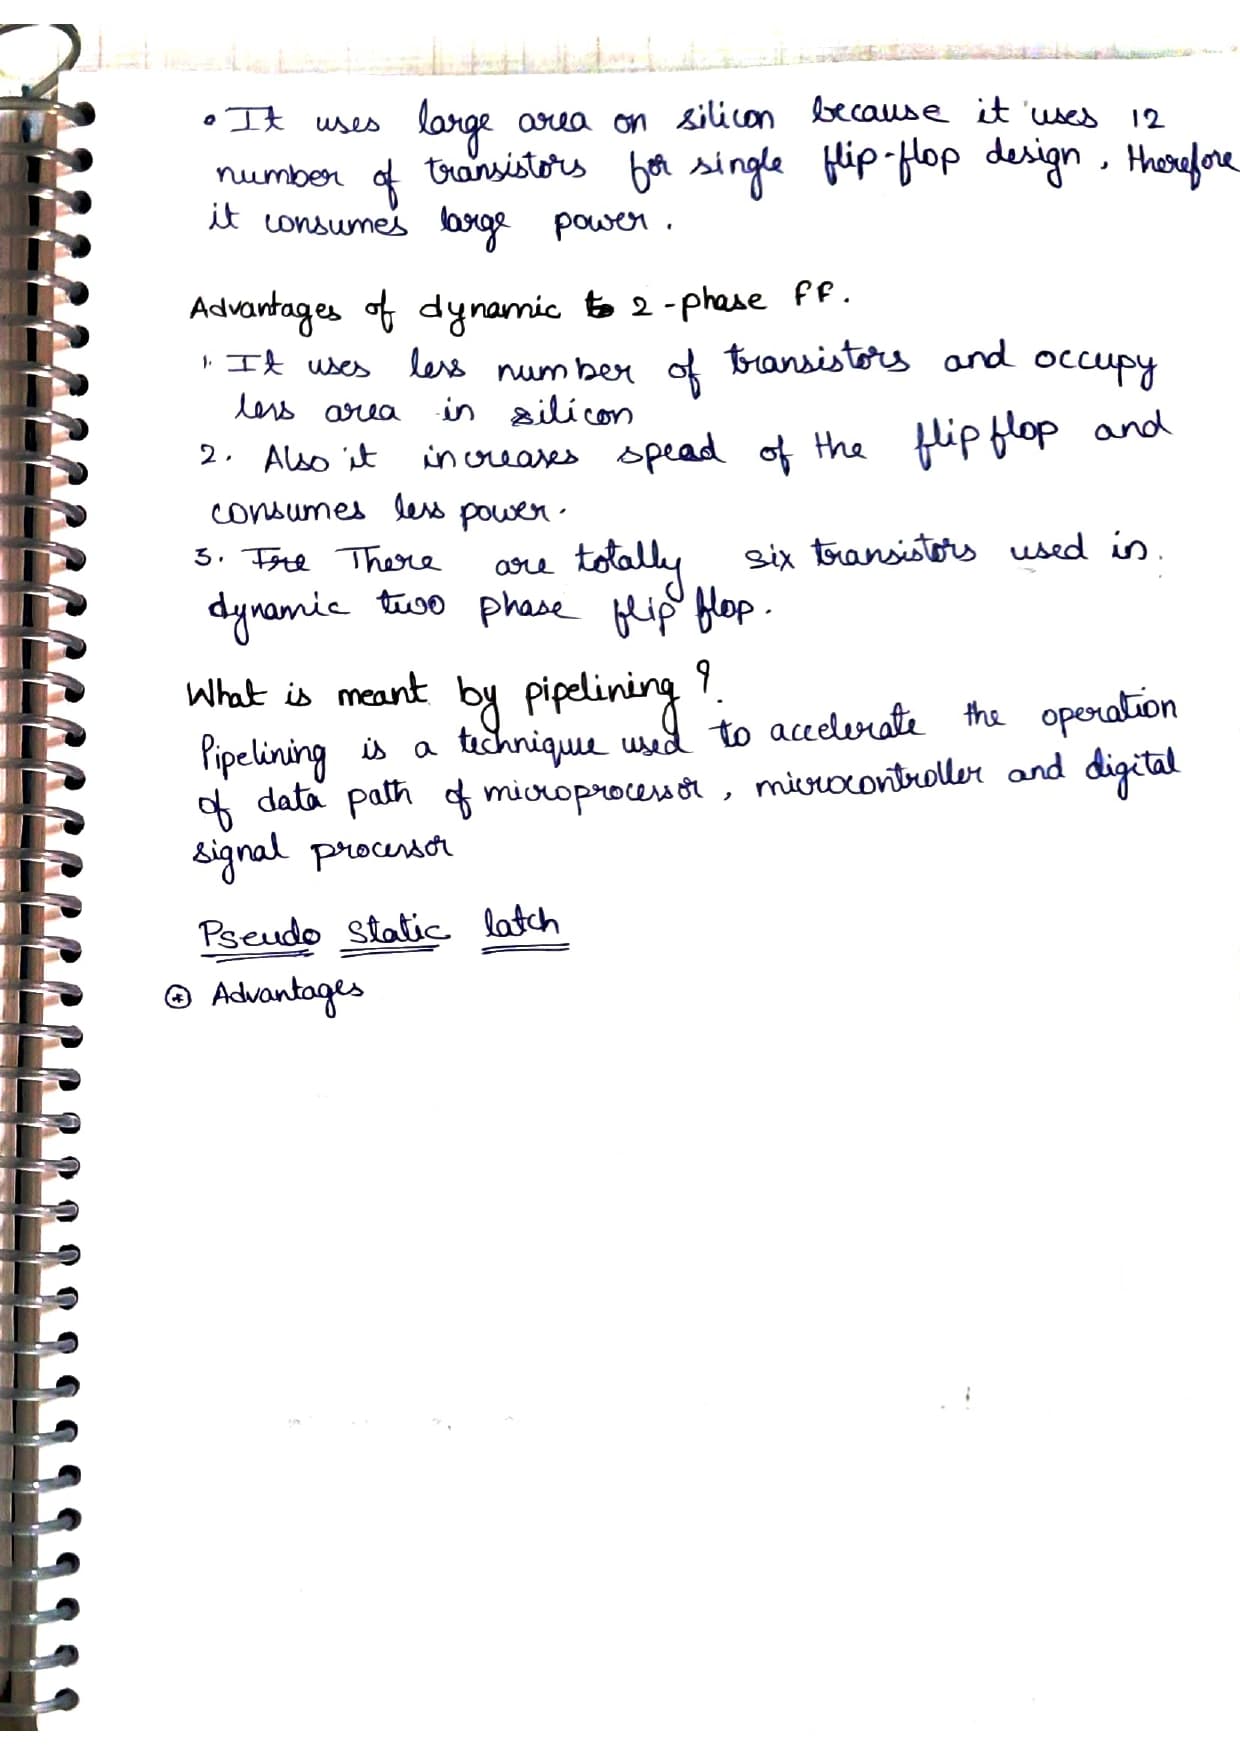 • It uses large area on silicon because it uses 12
number of transistors for single flip-flop design, therefore
it consumes large power.
Advantages of dynamic to 2-phase FF.
1. It uses less number of transistors and occupy
less area in silicon
2. Also it increases spead of the flip flop and
consumes less power.
3. There are totally six transistors used in.
dynamic two phase flip flop.
What is meant by pipelining ?
Pipelining is a technique used to accelerate the operation
of data path of microprocessor, microcontroller and digital
signal processor
Pseudo static latch
⊛ Advantages